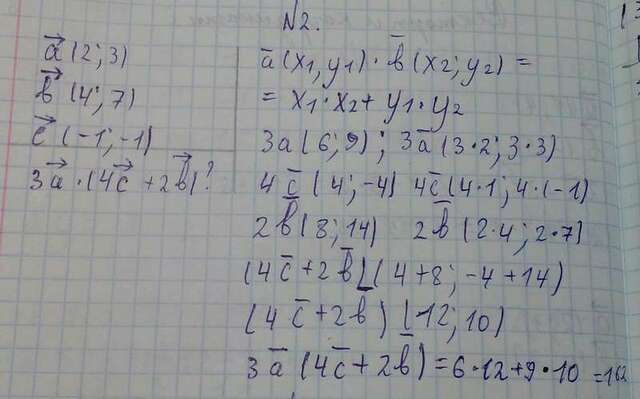 N2.
a⃗ (2; 3)
b⃗ (4; 7)
c⃗ (-1; -1)
3a⃗ · (4c⃗ + 2b⃗)?
a̅ (x1, y1) · b̅ (x2; y2) =
= x1 · x2 + y1 · y2
3a (6; 9); 3a̅ (3·2; 3·3)
4c̅ (4; -4) 4c̅ (4·1; 4·(-1)
2b̅ (8; 14) 2b̅ (2·4; 2·7)
(4c̅ + 2b̅) (4+8; -4+14)
(4c̅ + 2b) (12; 10)
3a̅ (4c̅ + 2b) = 6·12+9·10 =162